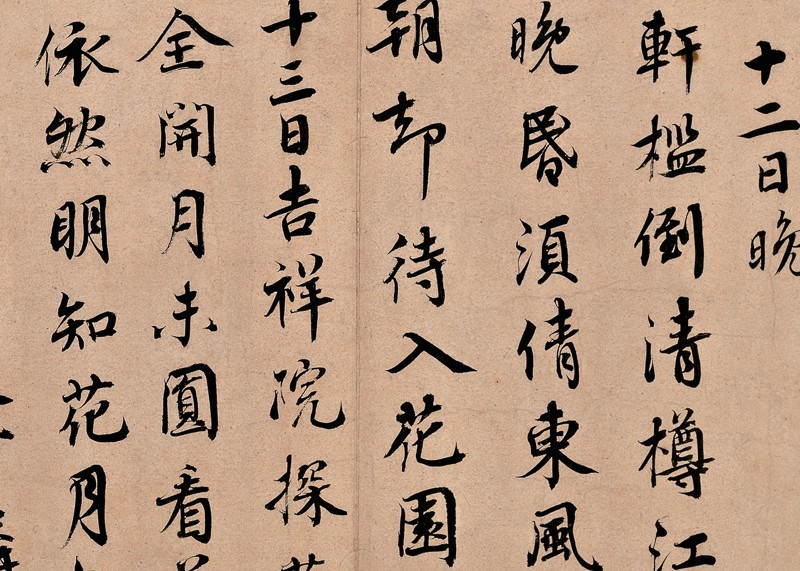 十二日晚
軒檻倒清樽江
晚昏須倩東風
朝却待入花園
十三日吉祥院探
全開月未圓看
依然明知花月